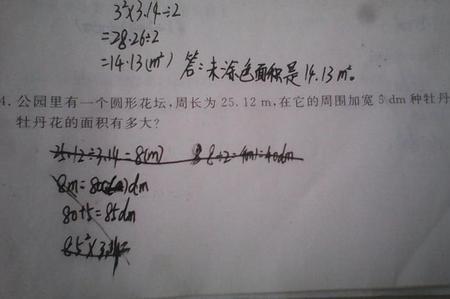 3²×3.14÷2
=28.26÷2
=14.13(m²) 答:未涂色面积是14.13m²。
4.公园里有一个圆形花坛,周长为25.12 m,在它的周围加宽5 dm种牡丹
牡丹花的面积有多大?
25.12÷3.14=8(m) 8÷2=4(m)=40dm
8m=80dm
80+5=85dm
85²×3.14